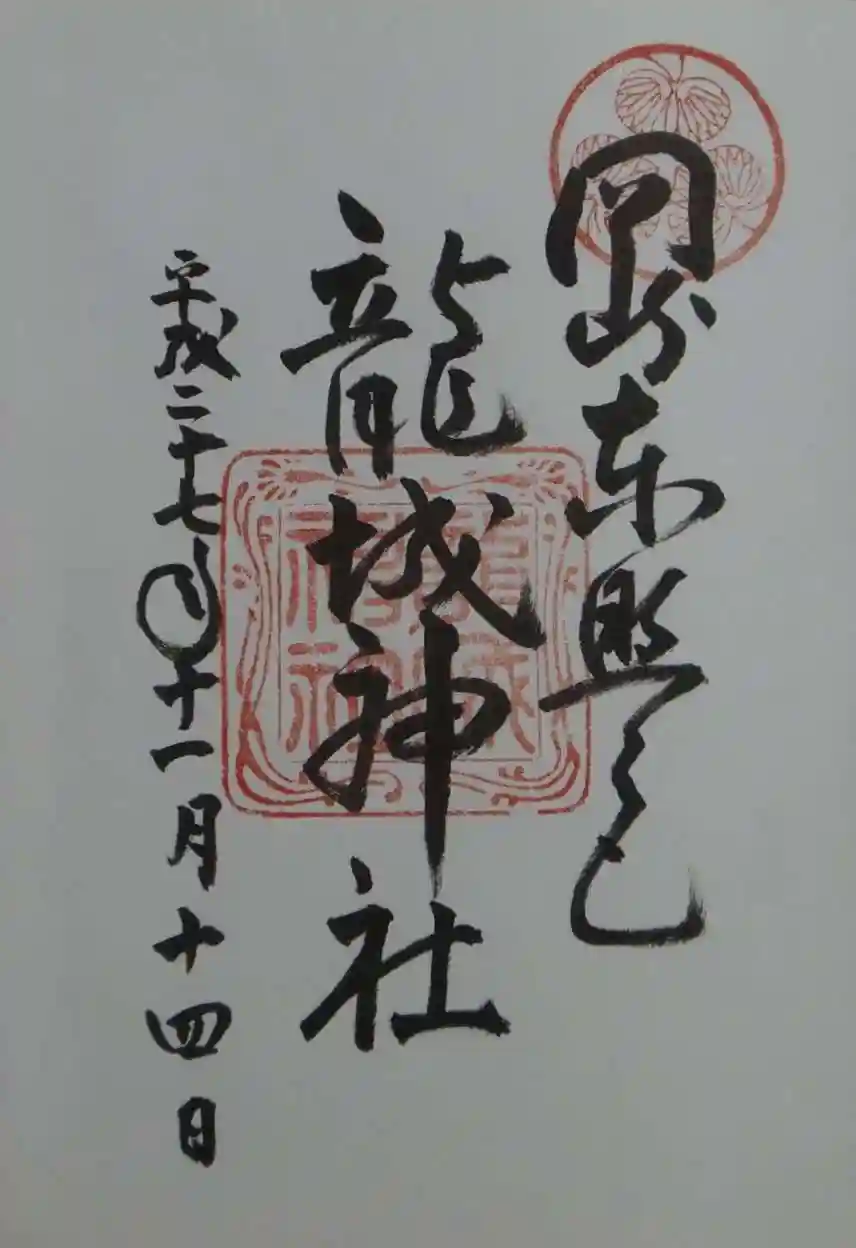 岡崎東照宮
龍城神社
平成二十七年十一月十四日
龍城神社